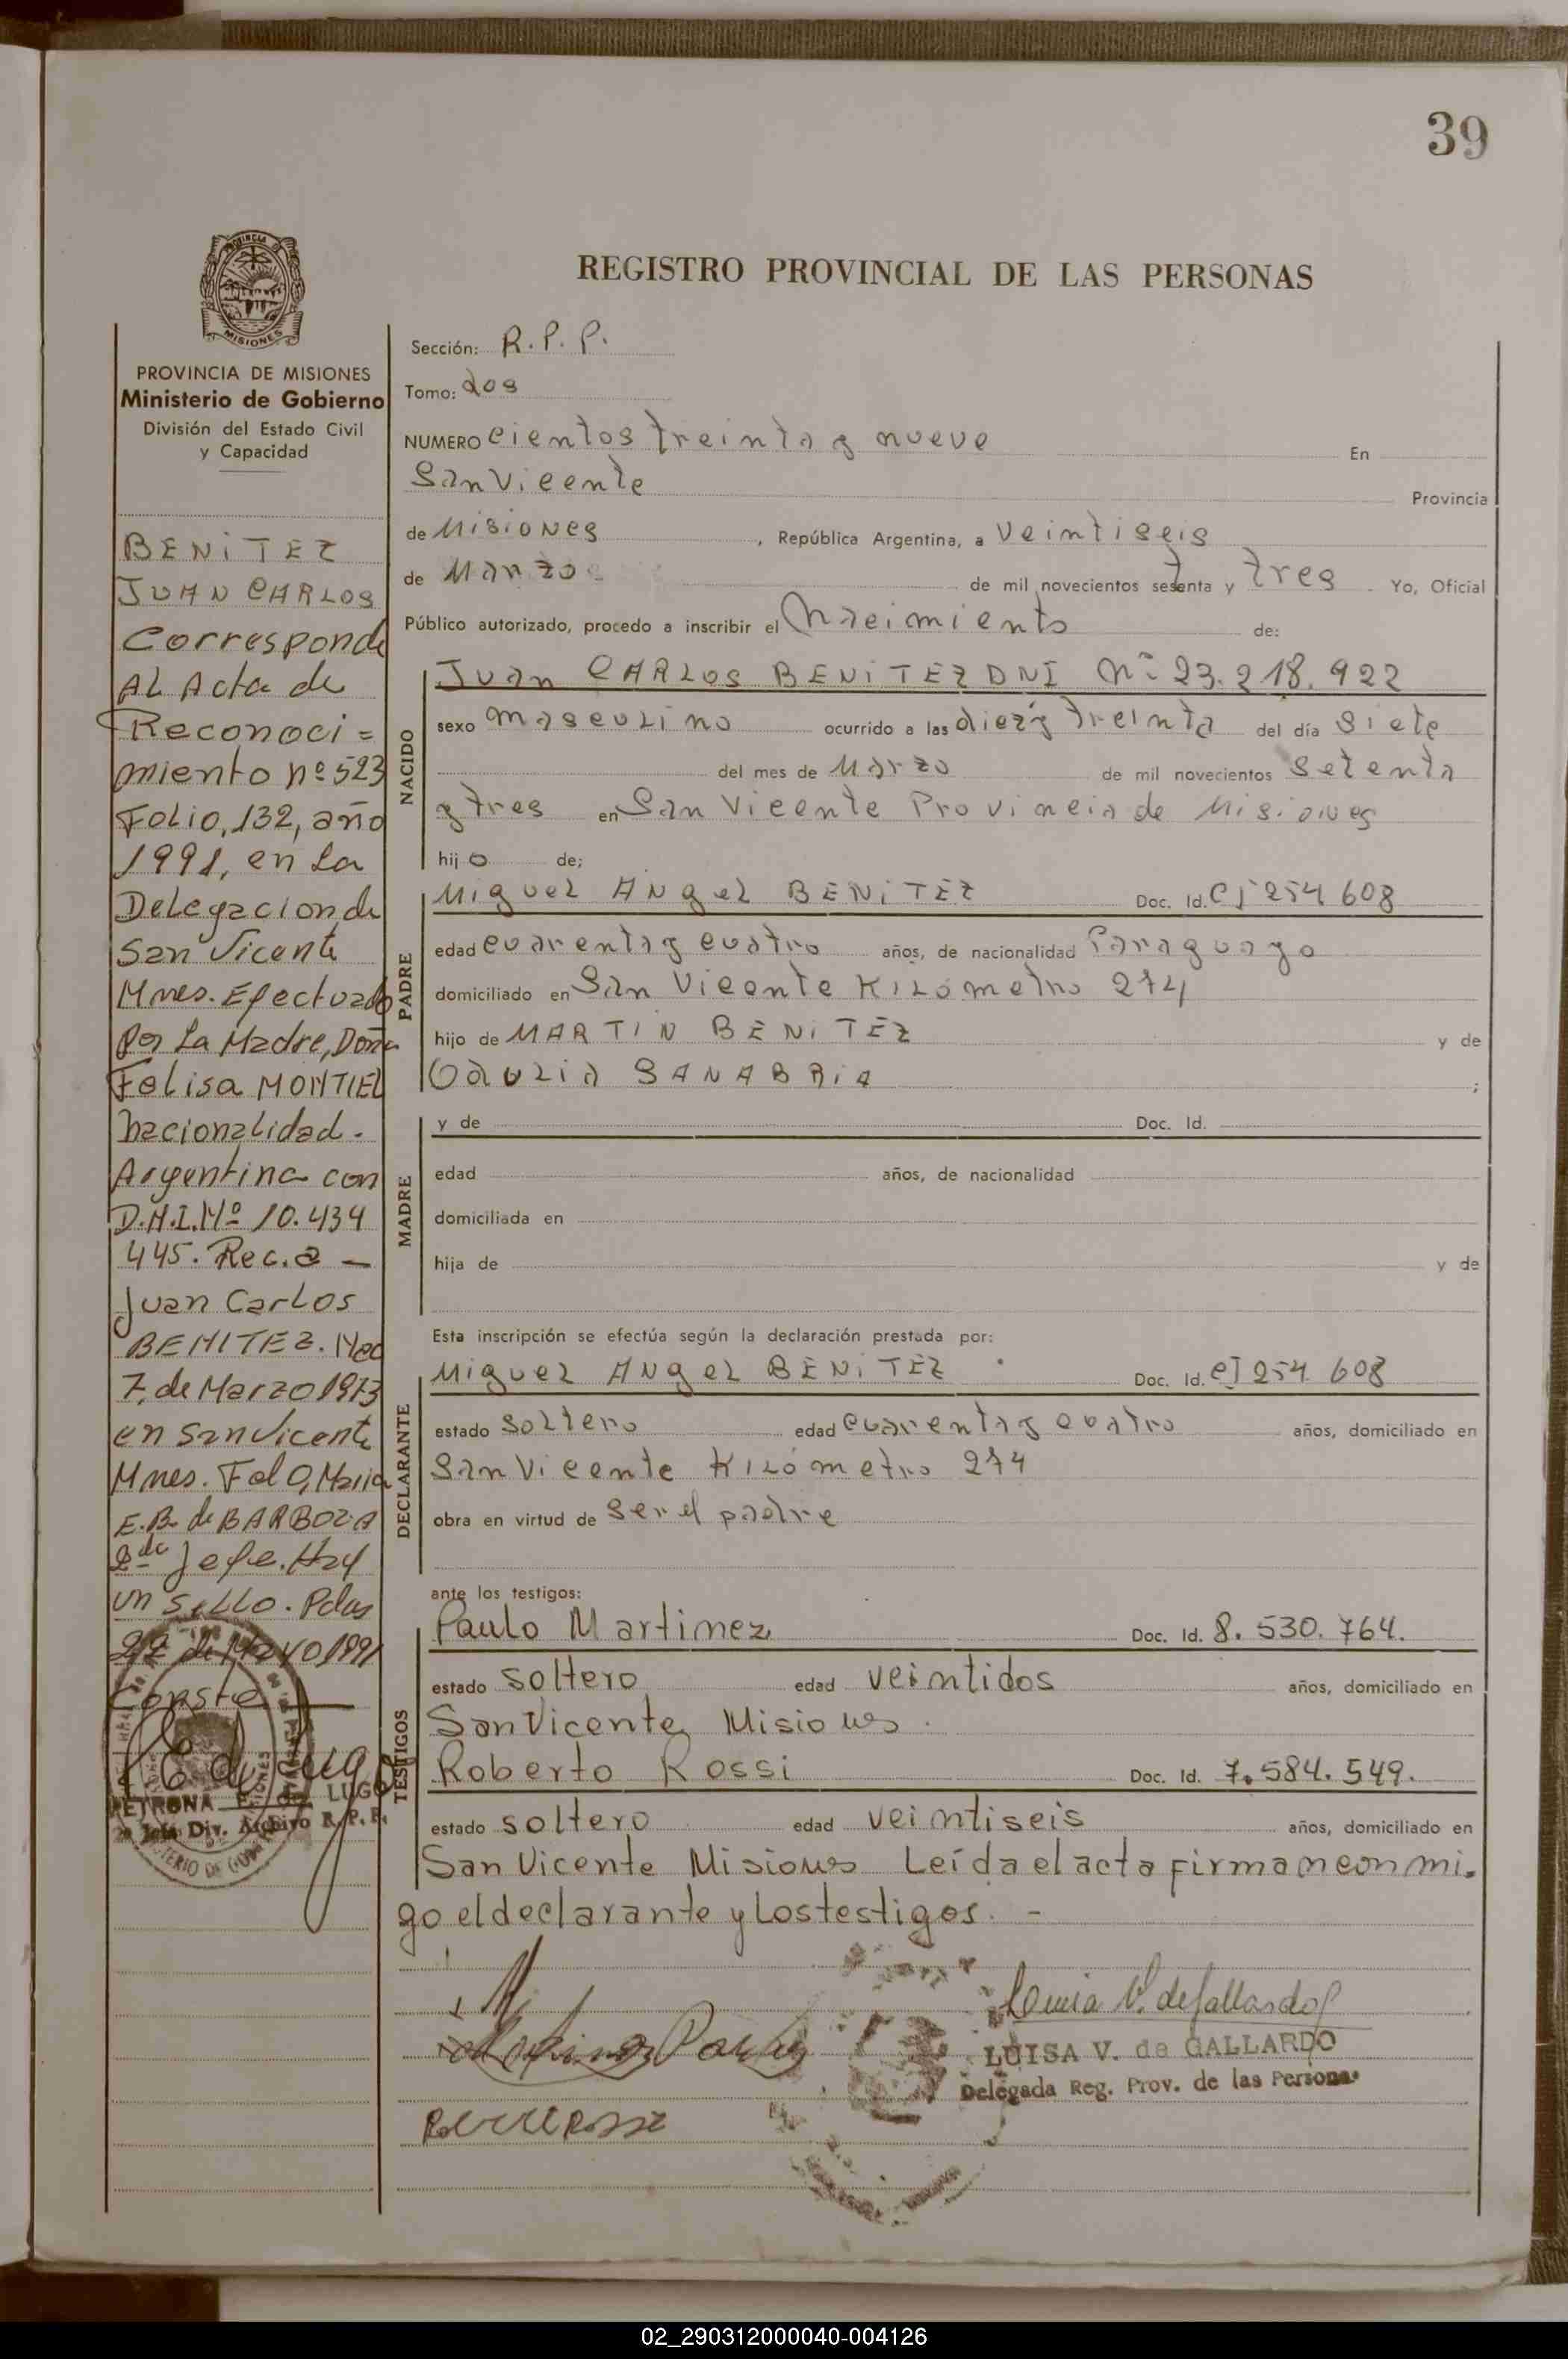 39
PROVINCIA DE MISIONES
REGISTRO PROVINCIAL DE LAS PERSONAS
PROVINCIA DE MISIONES
Ministerio de Gobierno
División del Estado Civil
y Capacidad
BENiTEZ
JUAN CARLOS
Corresponde
AL Acta de
Reconoci =
miento nº 523
Folio, 132, año
1991, en La
Delegacion de
San Vicente
Mnes. Efectuado
Por La Madre, Doña
Felisa MONTIEL
nacionalidad.
Argentina con
D.N.I. Nº 10.434
445. Rec. a —
Juan Carlos
BENITEZ. Nac
7, de Marzo 1973
en San Vicente
Mnes. Fdo, Maria
E.B. de BARBOZA
2da Jefe. Hay
un sello. Pdas
22 de Mayo 1991
Conste
PETRONA E. de LUGO
2º Jefe Div. Archivo R. P. P.
Sección: R. P. P.
Tomo: dos
NUMERO cientos treinta y nueve En
San Vicente Provincia
de Misiones , República Argentina, a veintiseis
de Marzo de mil novecientos setenta y tres Yo, Oficial
Público autorizado, procedo a inscribir el Nacimiento de:
NACIDO
Juan CARLOS BENiTEZ DNI Nº 23.218.922
sexo masculino ocurrido a las diez y treinta del día siete
del mes de Marzo de mil novecientos setenta
y tres en San Vicente Provincia de Misiones
hijo de;
PADRE
Miguel ANgel BENiTEZ Doc. Id. CI 254 608
edad cuarenta y cuatro años, de nacionalidad Paraguayo
domiciliado en San Vicente Kilómetro 274
hijo de MARTIN BENiTEZ y de
SANABRiA ;
MADRE
y de Doc. Id.
edad años, de nacionalidad
domiciliada en
hija de y de
Esta inscripción se efectúa según la declaración prestada por:
DECLARANTE
Miguel ANgel BENiTEZ Doc. Id. CI 254 608
estado soltero edad cuarenta y cuatro años, domiciliado en
San Vicente Kilómetro 274
obra en virtud de ser el padre
ante los testigos:
TESTIGOS
Paulo Martinez Doc. Id. 8. 530. 764.
estado soltero edad veintidos años, domiciliado en
San Vicente Misiones.
Roberto Rossi Doc. Id. 7. 584. 549.
estado soltero edad veintiseis años, domiciliado en
San Vicente Misiones Leída el acta firman conmi-
go el declarante y Los testigos. -
Luisa V. de Gallardo
LUISA V. de GALLARDO
Delegada Reg. Prov. de las Personas
02_290312000040-004126